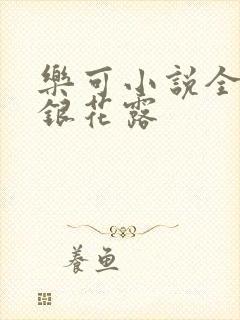 樂可小說全
銀花露
養魚